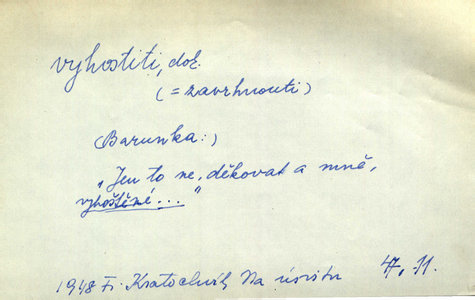 vyhostiti, dok.
(= zavrhnouti)
(Barunka:)
„Jen to ne, děkovat a mně,
vyhoštěné..."
1948 Fr. Kratochvíl, Na úsvitu 47, 11.